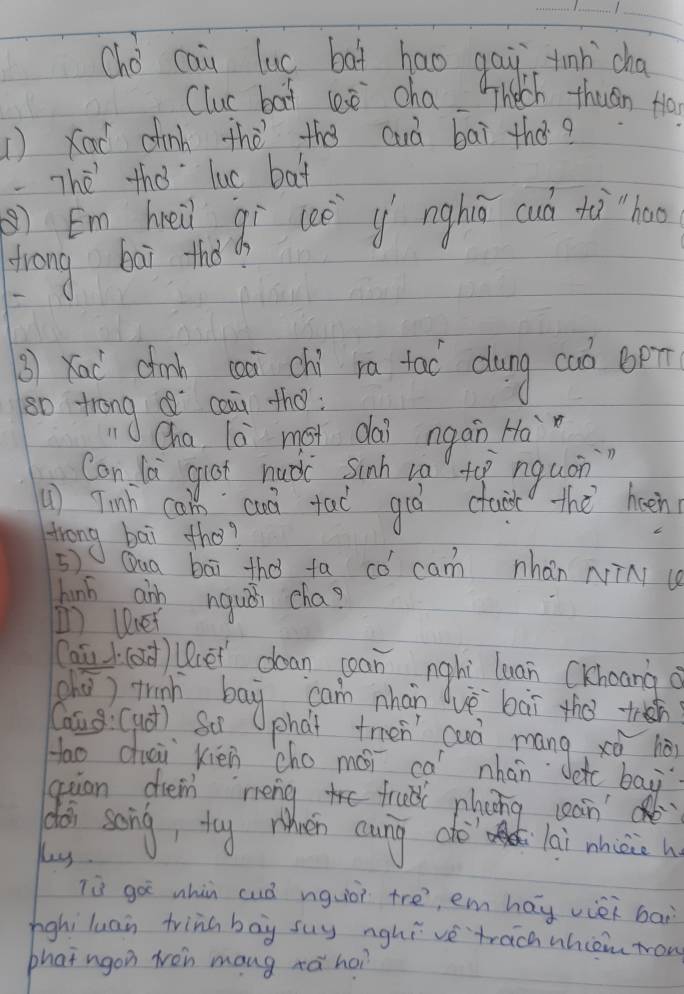 Chở câu lục bát hao gầy tình cha
(Lục bát về cha - Thích thuận
1) Xác định thể thơ của bài thơ?
- Thể thơ lục bát
2) Em hiểu gì về ý nghĩa của từ "hao
trong bài thơ?
-
3) Xác định và chỉ ra tác dụng của BPTT
so trong 2 câu thơ:
"Cha là một dải ngân Hà
Con là giọt nước sinh ra từ nguồn"
4) Tình cảm của tác giả được thể hiện
trong bài thơ?
5) Qua bài thơ ta có cảm nhận NTN
hình ảnh người cha?
II) Viết
Câu 1: (2đ) Viết đoạn văn nghị luận (Khoảng
chữ) trình bày cảm nhận về bài thơ trên
Câu 2: (4đ) Sự phát triển của mạng xã hội
tạo điều kiện cho mỗi cá nhân bày
quan điểm riêng trước những vấn đề
đời sống, tuy nhiên cũng có lại nhiều
lụy.
Từ góc nhìn của người trẻ, em hãy viết bài
nghị luận trình bày suy nghĩ về trách nhiệm trong
phát ngôn trên mạng xã hội